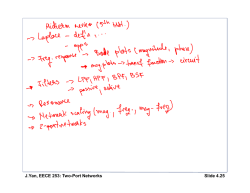 → Laplace - defⁿ, ...
- apps
→ Freq. response → Bode plots (magnitude, phase)
→ mag plots → transf function → circuit
→ Filters → LPF, HPF, BPF, BSF
→ passive, active.
→ Resonance
→ Network scaling (mag, freq, mag-freq)
→ 2-port networks
J.Yan, EECE 253: Two-Port Networks
Slide 4.25